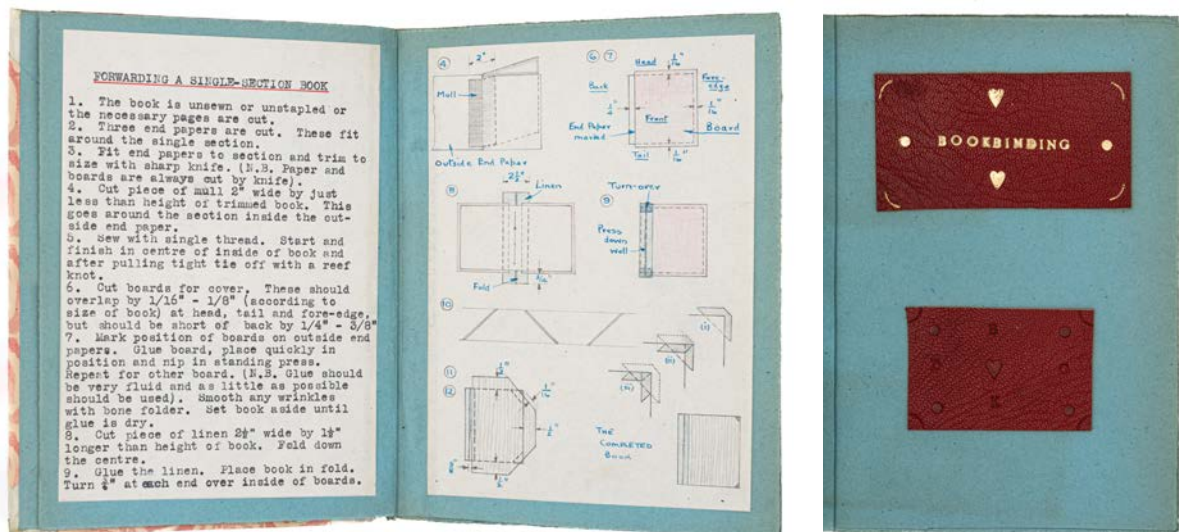 FORWARDING A SINGLE-SECTION BOOK
1. The book is unsewn or unstapled or
the necessary pages are cut.
2. Three end papers are cut. These fit
around the single section.
3. Fit end papers to section and trim to
size with sharp knife. (N.B. Paper and
boards are always cut by knife).
4. Cut piece of mull 2" wide by just
less than height of trimmed book. This
goes around the section inside the out-
side end paper.
5. Sew with single thread. Start and
finish in centre of inside of book and
after pulling tight tie off with a reef
knot.
6. Cut boards for cover. These should
overlap by 1/16" - 1/8" (according to
size of book) at head, tail and fore-edge,
but should be short of back by 1/4" - 3/8"
7. Mark position of boards on outside end
papers. Glue board, place quickly in
position and nip in standing press.
Repeat for other board. (N.B. Glue should
be very fluid and as little as possible
should be used). Smooth any wrinkles
with bone folder. Set book aside until
glue is dry.
8. Cut piece of linen 2½" wide by 1½"
longer than height of book. Fold down
the centre.
9. Glue the linen. Place book in fold.
Turn ¾" at each end over inside of boards.
4
2"
Mull
Outside End Paper
6 7
Head
1/16"
Back
Fore-
edge
1/4
1/16"
Front
End Paper
marked
Board
Tail
1/16"
8
2½"
Linen
Fold
9
Turn-over
Press
down
well
10
(i)
(ii)
(iii)
11
12
1/2"
THE
COMPLETED
BOOK
BOOKBINDING
B
K